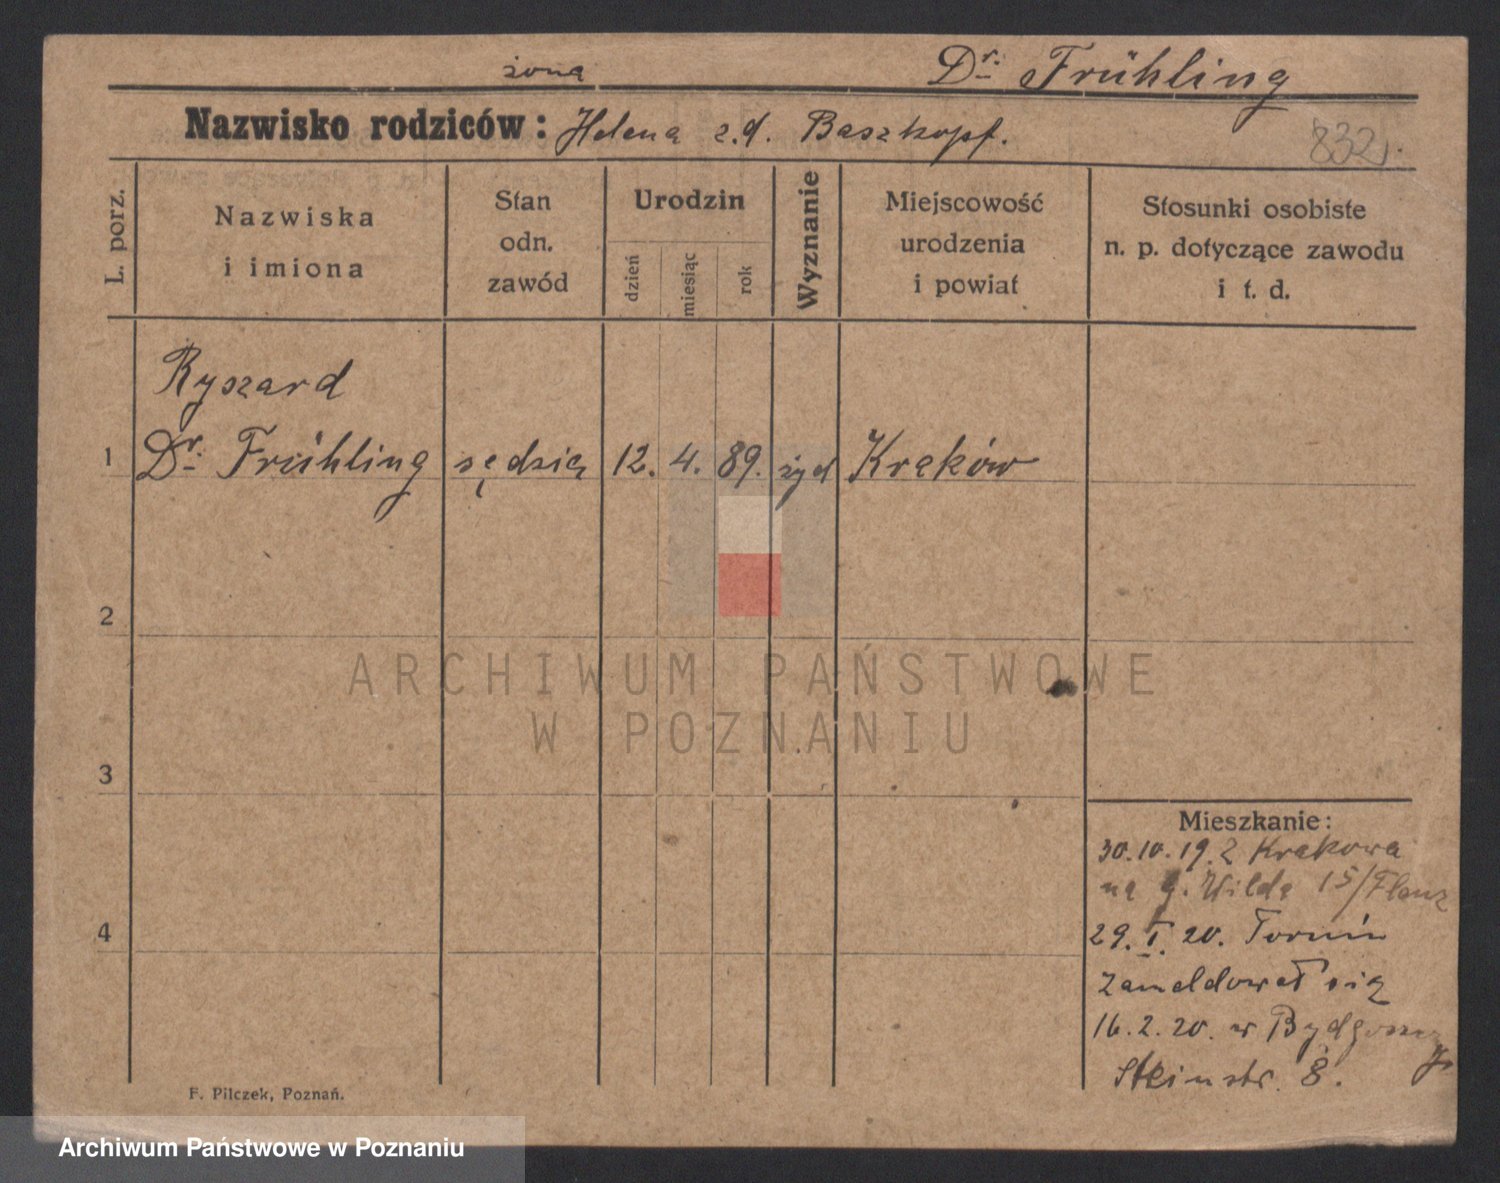 żona
Dr. Frühling
Nazwisko rodziców: Helena z.d. Baszkopf.
832
L. porz.
Nazwiska
i imiona
Stan
odn.
zawód
Urodzin
dzień
miesiąc
rok
Wyznanie
Miejscowość
urodzenia
i powiat
Stosunki osobiste
n. p. dotyczące zawodu
i t. d.
Ryszard
1 Dr. Frühling sędzia 12. 4. 89. żyd Kraków
2
3
4
ARCHIWUM PAŃSTWOWE
W POZNANIU
Mieszkanie:
30.10.19. z Krakowa
na g. Wilda 15/
29. I. 20. Toruń
zameldował się
16.2.20. w Bydgoszczy
Steinstr. 8.
F. Pilczek, Poznań.
Archiwum Państwowe w Poznaniu